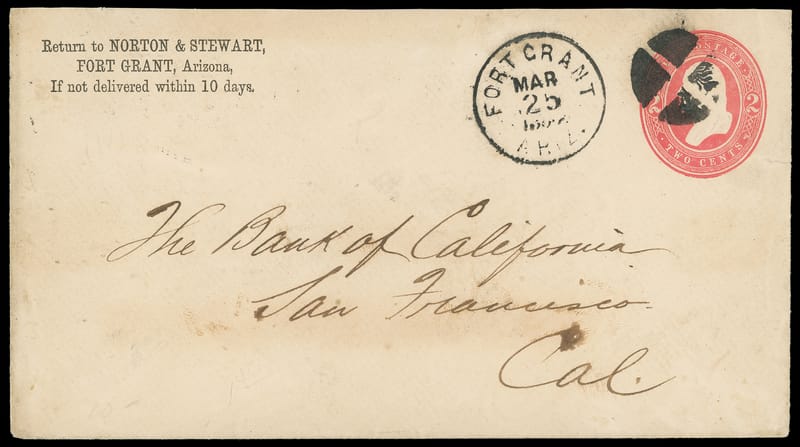 Return to NORTON & STEWART,
FORT GRANT, Arizona,
If not delivered within 10 days.
FORT GRANT
MAR
25
ARIZ.
POSTAGE
2
TWO CENTS
The Bank of California
San Francisco.
Cal.